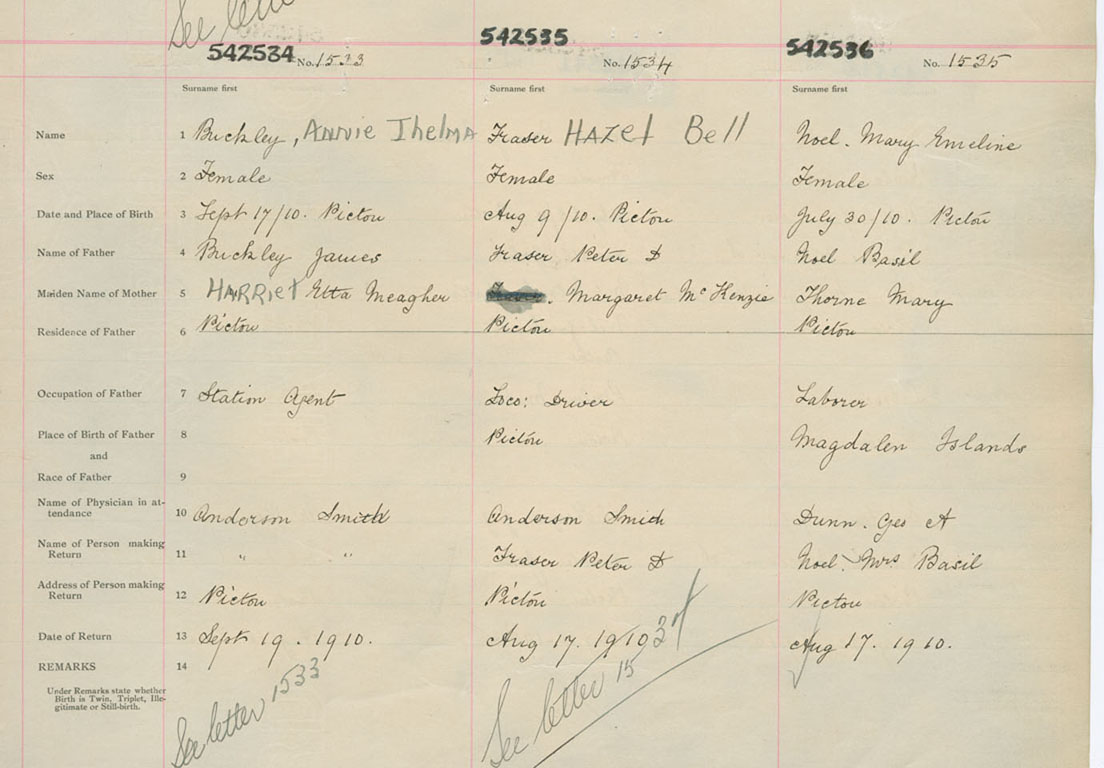 See letter
542534 No. 1533
542535 No. 1534
542536 No. 1535
Surname first Surname first Surname first
Name 1 Buckley, Annie Thelma Fraser Hazel Bell Noel. Mary Emeline
Sex 2 Female Female Female
Date and Place of Birth 3 Sept 17/10. Pictou Aug 9/10. Pictou July 30/10. Pictou
Name of Father 4 Buckley James Fraser Peter D Noel Basil
Maiden Name of Mother 5 HARRIET Etta Meagher Margaret McKenzie Thorne Mary
Residence of Father 6 Pictou Pictou Pictou
Occupation of Father 7 Station Agent Loco: Driver Laborer
Place of Birth of Father 8 Pictou Magdalen Islands
and
Race of Father 9
Name of Physician in at-
tendance 10 Anderson Smith Anderson Smith Dunn. Geo A
Name of Person making
Return 11 " " Fraser Peter D Noel. Mrs Basil
Address of Person making
Return 12 Pictou Pictou Pictou
Date of Return 13 Sept 19. 1910. Aug 17. 1910 Aug 17. 1910.
REMARKS 14
Under Remarks state whether
Birth is Twin, Triplet, Ille-
gitimate or Still-birth.
See letter 1533 See letter 1534